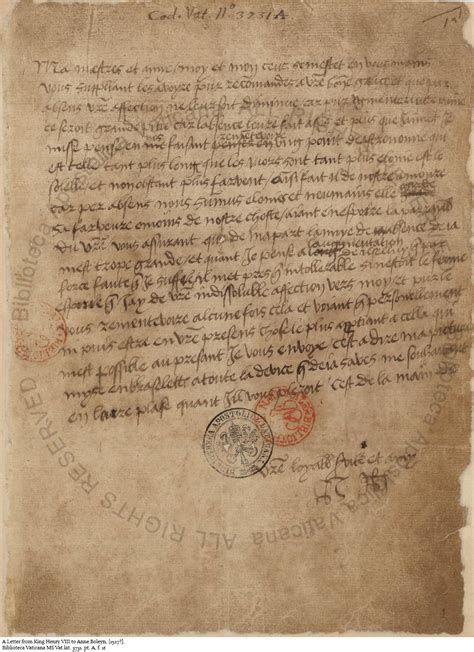 Cod. Vat. N° 3731 A
15
Ma mestres et amye, moy et mon ceur semestet en vous mains
vous suppliant les avoyre pour recomandes a vre bone grace et que par
absens vre affection ne leur soit diminue car pour leur paine
ce seroit grande pitie car labsence leure fait ases et plus que jamès je
nusse pense en me faisant rementevoire ung point dastronomie qui
est telle tant plus long que les jours sont tant plus elonie est le
solelle et nonobstant plus farvent ainsi fait il de notre amoure
car per absens nous sumus elones et neumains elle garde
sa farveure omoins de notre chosté aiant espoire la paraylle
du vre vous assurant que de ma part lannuye de absence de ja
mest trope grande et quant je pense a laugmentation de
force faut que je suffre il met presque intollerable si nestoit le ferme
espoire que jay de vre indissoluble affection vers moy et pur le
vous rementevoire alcune fois cela et voiant que personellement
ne puis estre en vre presens chose le plus appertiant a cella qui
mest possible au presant je vous envoye cest a dire ma picture
myse en braselett a toute la device que deja saves me souhaitant
en larre plase quant il vous pleroit cest de la main de
vre loyall serviteur et amy
H R
A Letter from King Henry VIII to Anne Boleyn, [1527?].
Biblioteca Vaticana MS Vat.lat. 3731. pt. A, f. 15
Biblioteca Apostolica Vaticana ALL RIGHTS RESERVED